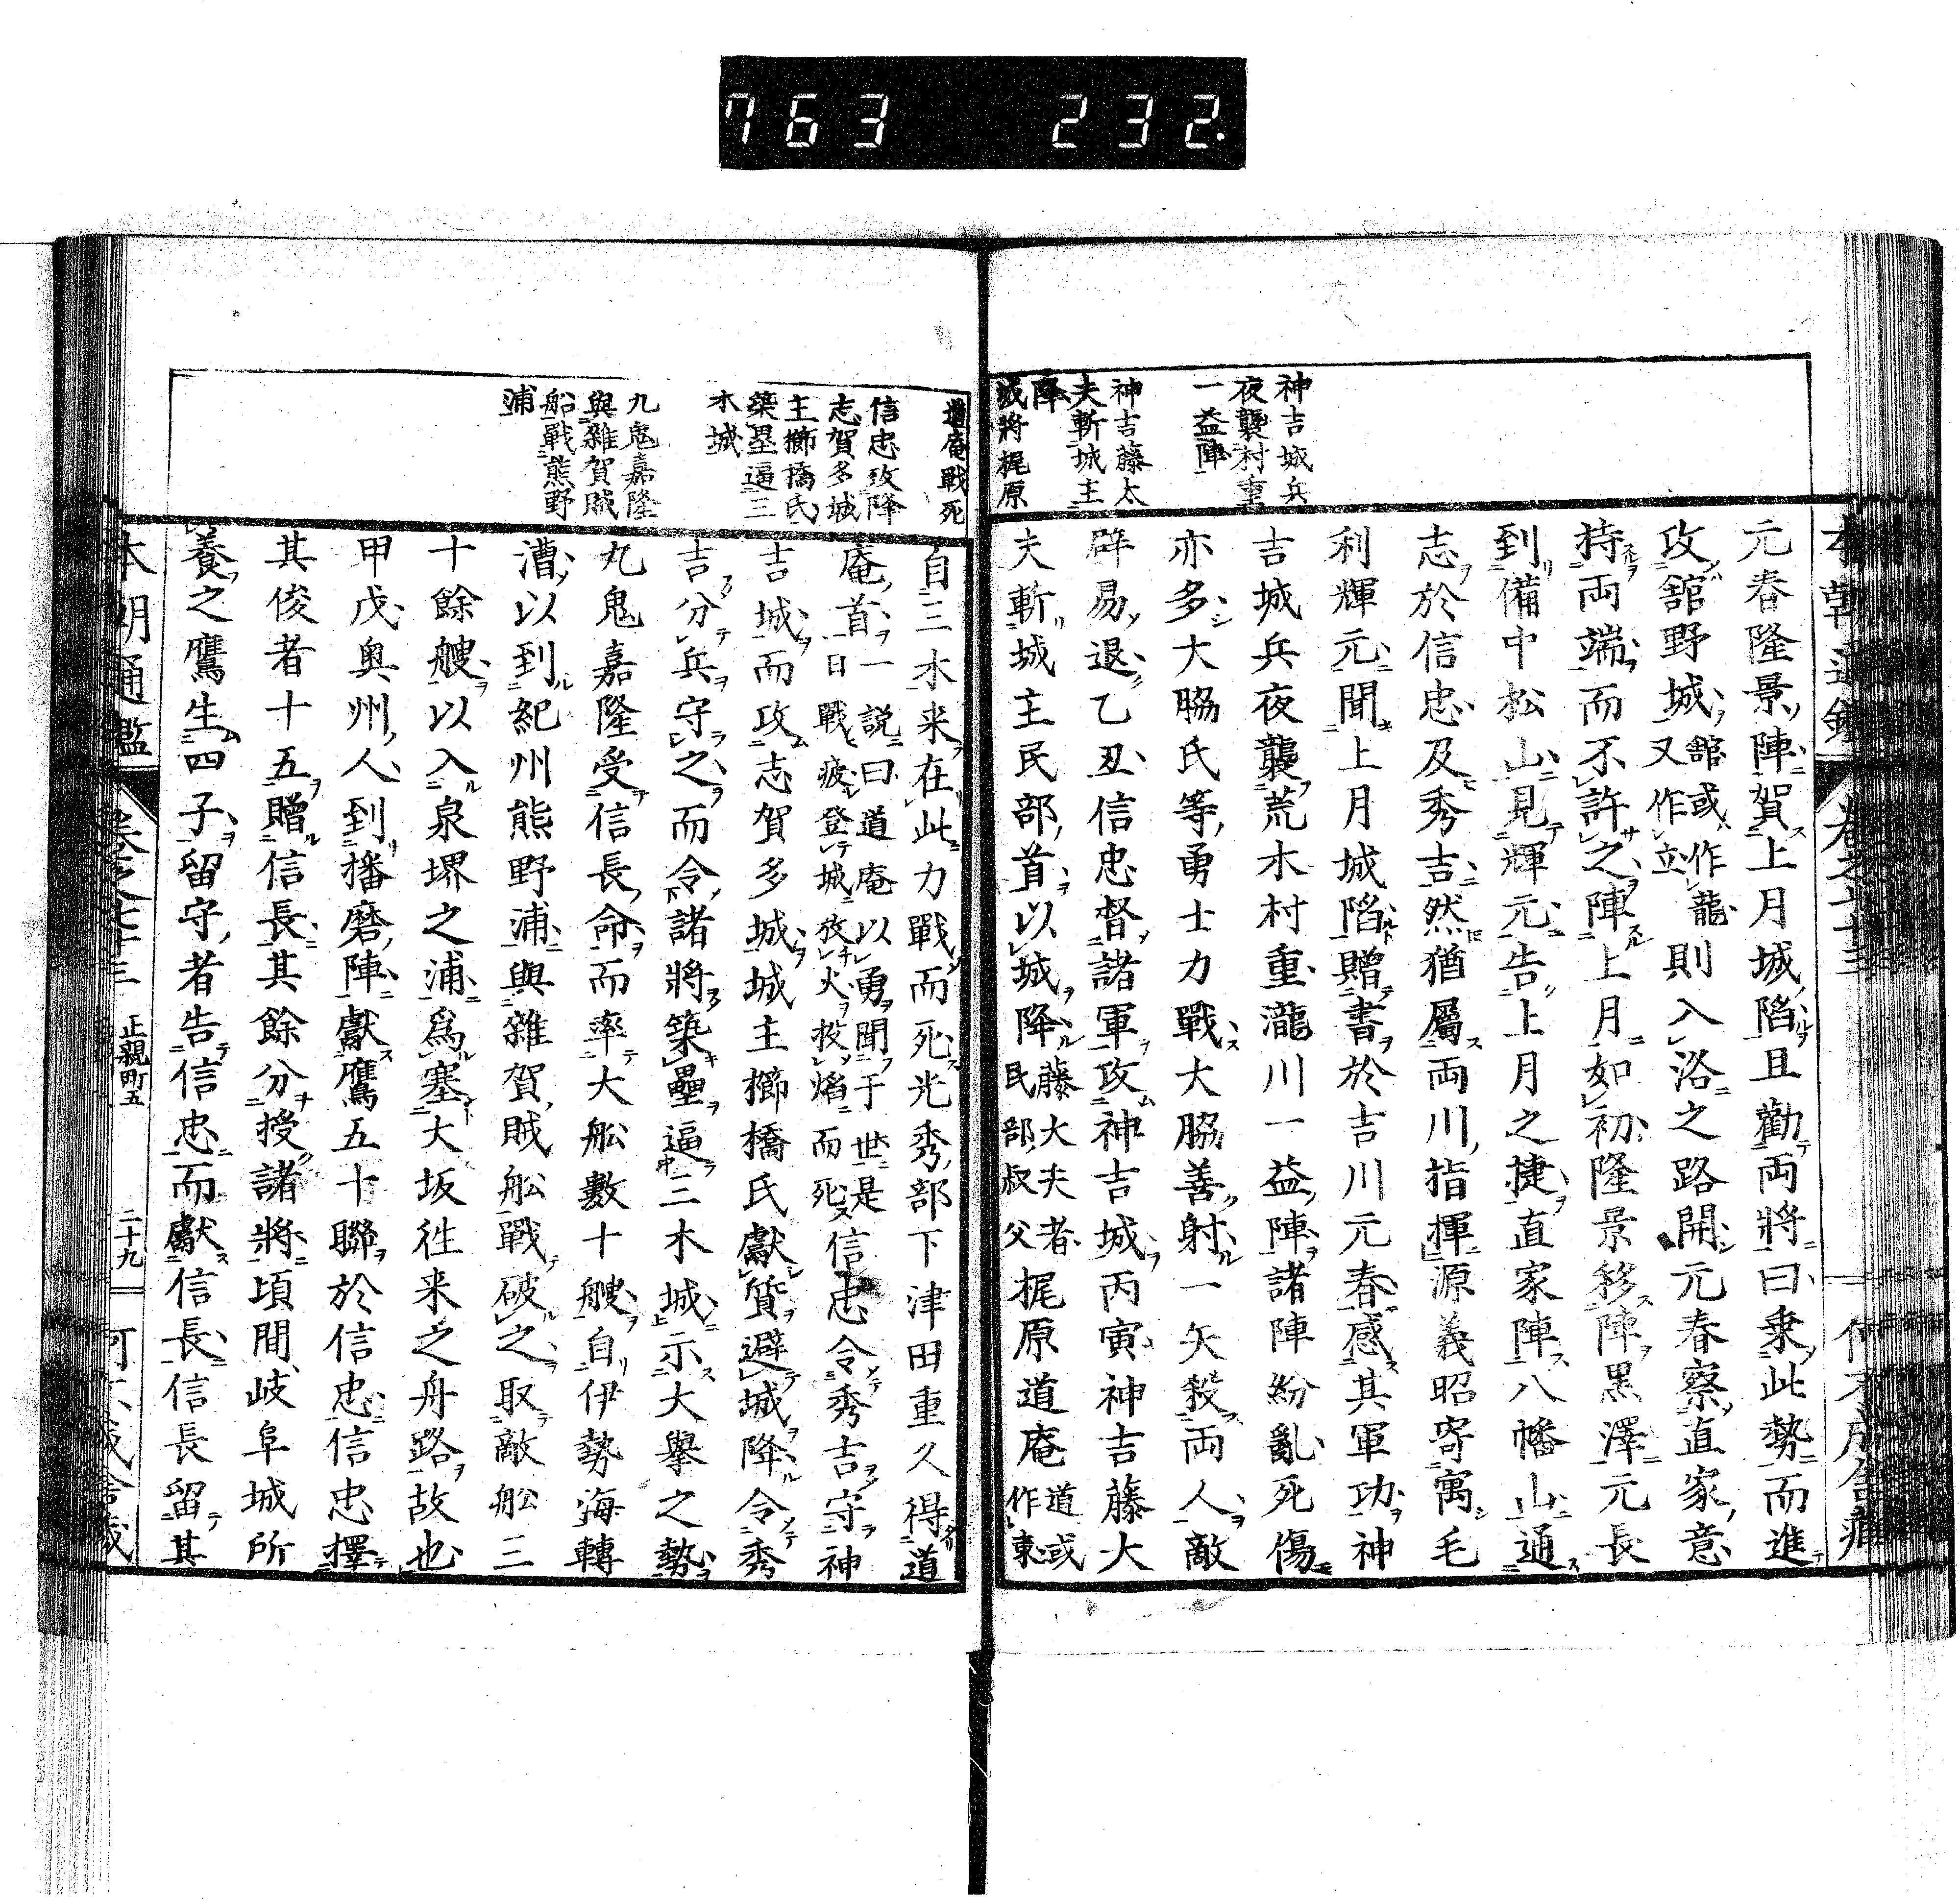 763 232.
神吉城兵
夜襲村重
一益陣
神吉藤太
夫斬城主
降
城將梶原
元春隆景陣賀上月城陷且勸両將曰乗此勢而進
攻舘野城舘或作龍又作立則入洛之路開元春察直家意
持両端而不許之陣上月如初隆景移陣黒澤元長
到備中松山見輝元告上月之捷直家陣八幡山通
志於信忠及秀吉然猶屬両川指揮源義昭寄寓毛
利輝元聞上月城陷贈書於吉川元春感其軍功神
吉城兵夜襲荒木村重瀧川一益陣諸陣紛亂死傷
亦多大脇氏等勇士力戰大脇善射一矢殺両人敵
辟易退乙丑信忠督諸軍攻神吉城丙寅神吉藤大
夫斬城主民部首以城降藤大夫者民部叔父梶原道庵道或作東
道庵戰死
信忠攻降
志賀多城
主櫛橋氏
築塁逼三
木城
九鬼嘉隆
與雜賀賊
船戰熊野
浦
自三木来在此力戰而死光秀部下津田重久得道
庵首一説曰道庵以勇聞于世是日戰疲登城放火投焰而死信忠令秀吉守神
吉城而攻志賀多城城主櫛橋氏獻質避城降令秀
吉分兵守之而令諸將築壘逼三木城示大擧之勢
九鬼嘉隆受信長命而率大舩數十艘自伊勢海轉
漕以到紀州熊野浦與雜賀賊舩戰破之取敵舩三
十餘艘以入泉堺之浦爲塞大坂徃来之舟路故也
甲戌奥州人到播磨陣獻鷹五十聯於信忠信忠擇
其俊者十五贈信長其餘分授諸將頃間岐阜城所
養之鷹生四子留守者告信忠而獻信長信長留其
本朝通鑑 卷之七十三 正親町五 二十九